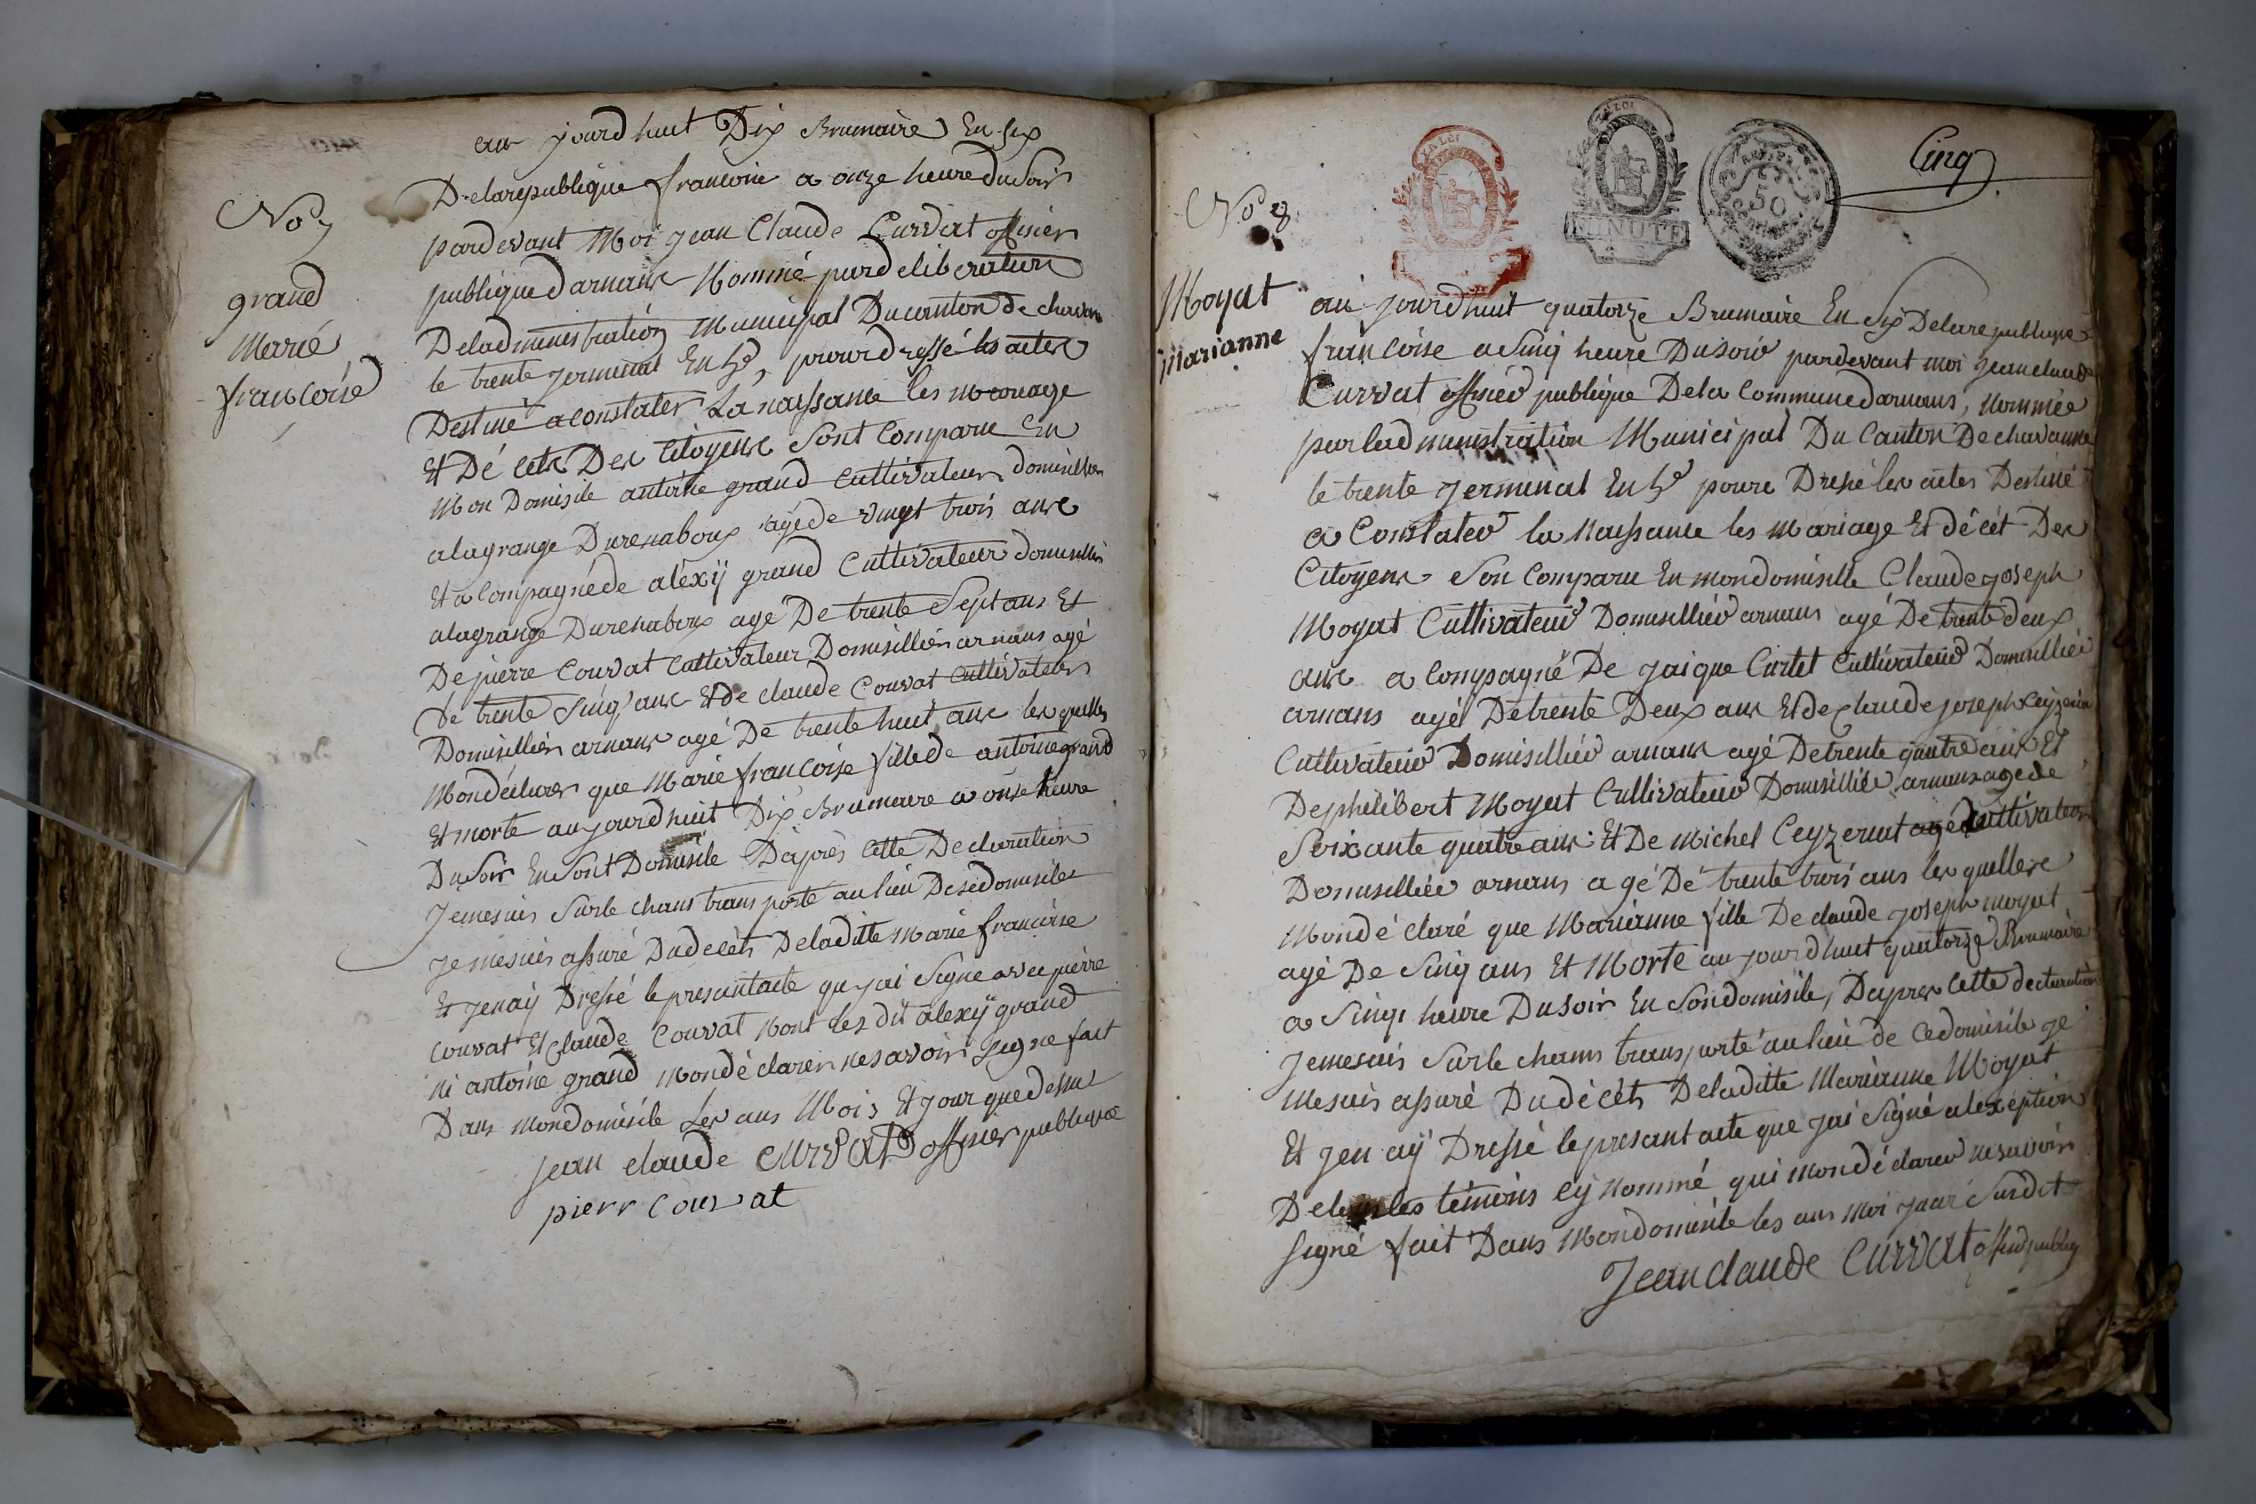 No 7
grand
Marié
francoise
au jourdhuit Dix Brumaire En six
Delarepublique francoise a onze heure Du Soir
pardevant Moi jean Claude Curvat offisier
publique darnans Nommé pardeliberation
Deladministration Municipal Du canton de chavan
le trente jerminal En 5e, pour dressé les actes
Destiné a constater La naissance les mariage
Et Décéts Des Citoyens Sont Comparu En
Mon Domisile antoine grand Cultivateur domisillier
alagrange Durenaboux agé de vingt trois ans
Et a Compagné de aléxij grand Cultivateur domisillier
alagrange Durenaboux agé De trente Sept ans Et
De pierre Couvat Cultivateur Domisillier arnans agé
de trente Sinq ans Et de claude Couvat Cultivateur
Domisillier arnans agé De trente huit ans les quelles
Mon déclarer que Marie francoise fille de antoine grand
Et morte au jourdhuit Dix Brumaire a onse heure
Du Soir En Sont Domisile Daprès Cette Declaration
Jemesuis Sur le chans transporté au lieu De se domisile
je mesuis assuré Du decéts De laditte Marie francoise
Et jenaij Dressé le presant acte que jai Signe avec pierre
Couvat Et Claude Couvat Nont les dit alexij grand
Ni antoine grand Mon déclarer ne savoir Signe fait
Dans mon domisile Les ans Mois Et jour que dessu
jean claude CURVAT offisier publique
pierr Couvat
Cinq
LA LOI
LA LOI
MINUTE
50
No 8
Moyat
Marianne
au jourdhuit quatorze Brumaire En Six Delarepublique
francoise a Sinq heure Du soir pardevant moi jean claude
Curvat offisier publique De la Commune darnans, nommée
par ladministration Municipal Du Canton De chavanne
le trente jerminal En 5e pour Dressé les actes Destiné
a Constater la Naissance les Mariage Et décét Des
Citoyens Son Comparu En mon domisille Claude joseph
Moyat Cultivateur Domisillier arnans agé De trente deux
ans a Compagné De jaique Curtet Cultivateur Domisillier
arnans agé De trente Deux ans Et de claude joseph Ceyzeriat
Cultivateur Domisillier arnans agé De trente quatre ans Et
De philibert Moyat Cultivateur Domisillier arnans age de
Soixante quatre ans Et De Michel Ceyzeriat agé de Cultivateur
Domisilliée arnans agé De trente trois ans les quelles
Mon déclaré que Marianne fille De claude joseph moyat
agé De Sinq ans Et Morte au jourdhuit quatorze Brumaire
a Sinq heure Du soir En Son domisile, Dapres Cette declaration
Jemesuis Sur le chans transporté au lieu de ce domisile je
Mesuis assuré Du décéts De laditte Marianne Moyat
Et jen aij Dressé le presant acte que jai Signé alexeption
De les témoins cij Nommé qui mon déclarer ne savoir
Signé fait Dans Mon domisile les ans Moi jour Susdit
Jean claude CURVAT